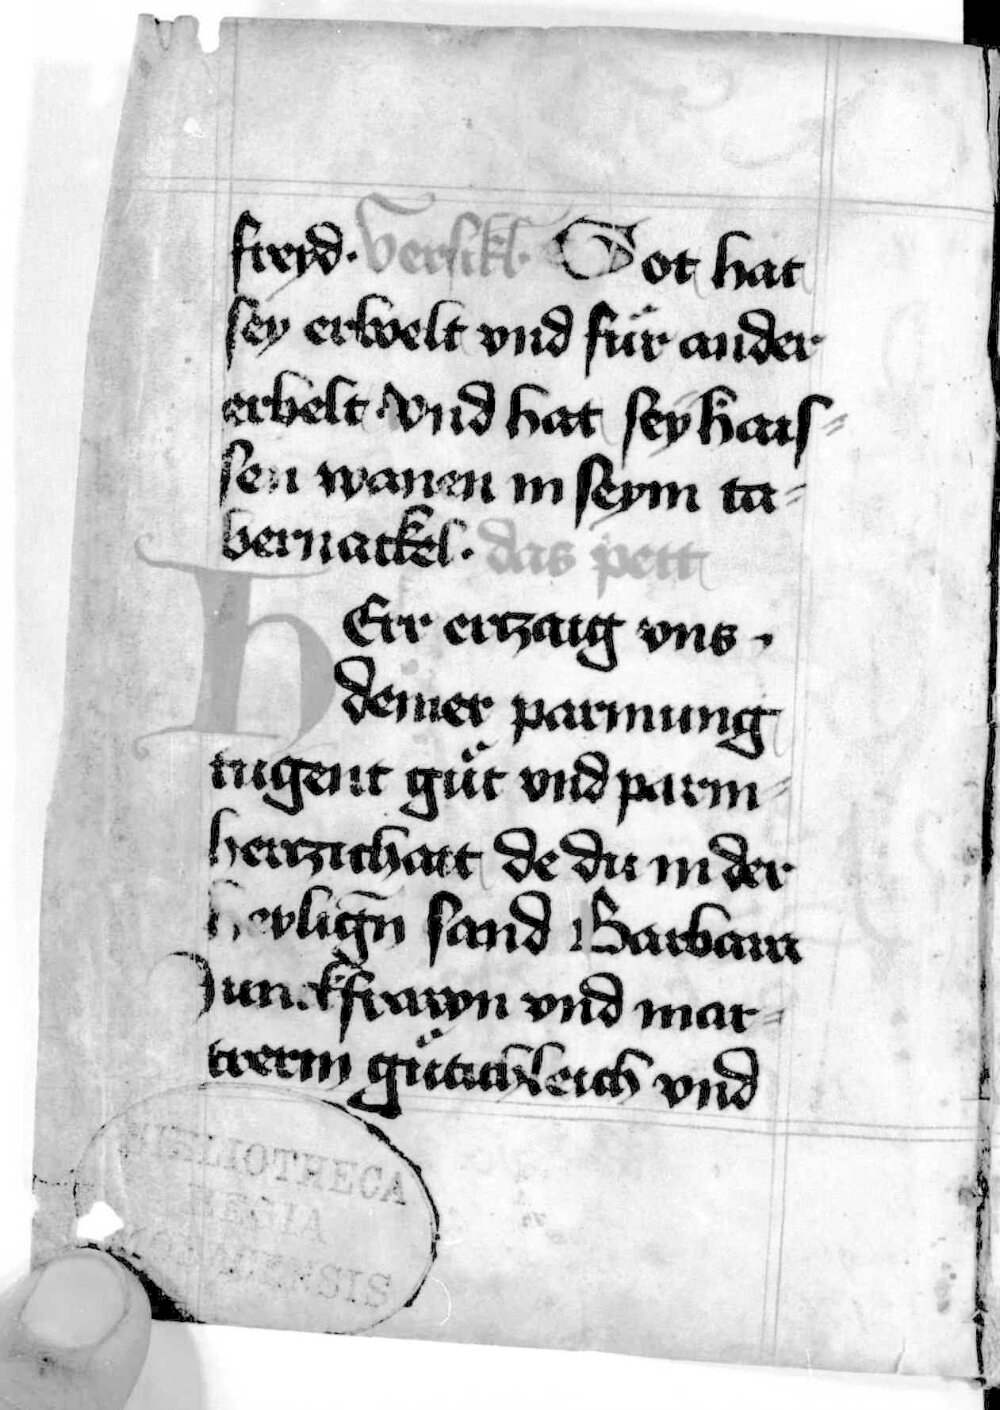 freyd. Versikl. Got hat
sey erwelt vnd für ander
erbelt. Vnd hat sey hais⸗
sen wanen in seym ta⸗
bernackel. das pett
HErr ertzaig vns.
deiner parmung
tugent güt vnd parm⸗
hertzichait de du in der
heyligñ sand Barbara
Junckfrawn vnd mar⸗
trerin gütichleich vnd
BIBLIOTHECA
REGIA
MONACENSIS